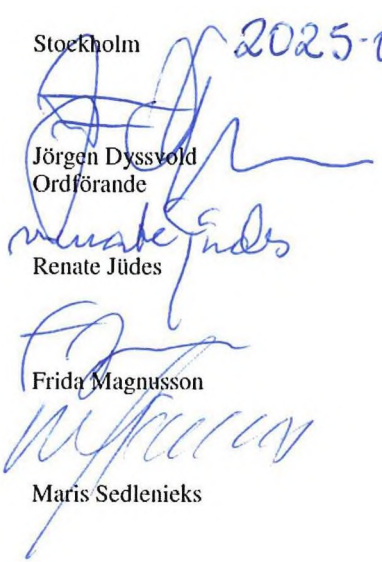 Stockholm 2025-
Jörgen Dyssvold
Ordförande
renate jüdes
Renate Jüdes
Frida Magnusson
Maris Sedlenieks